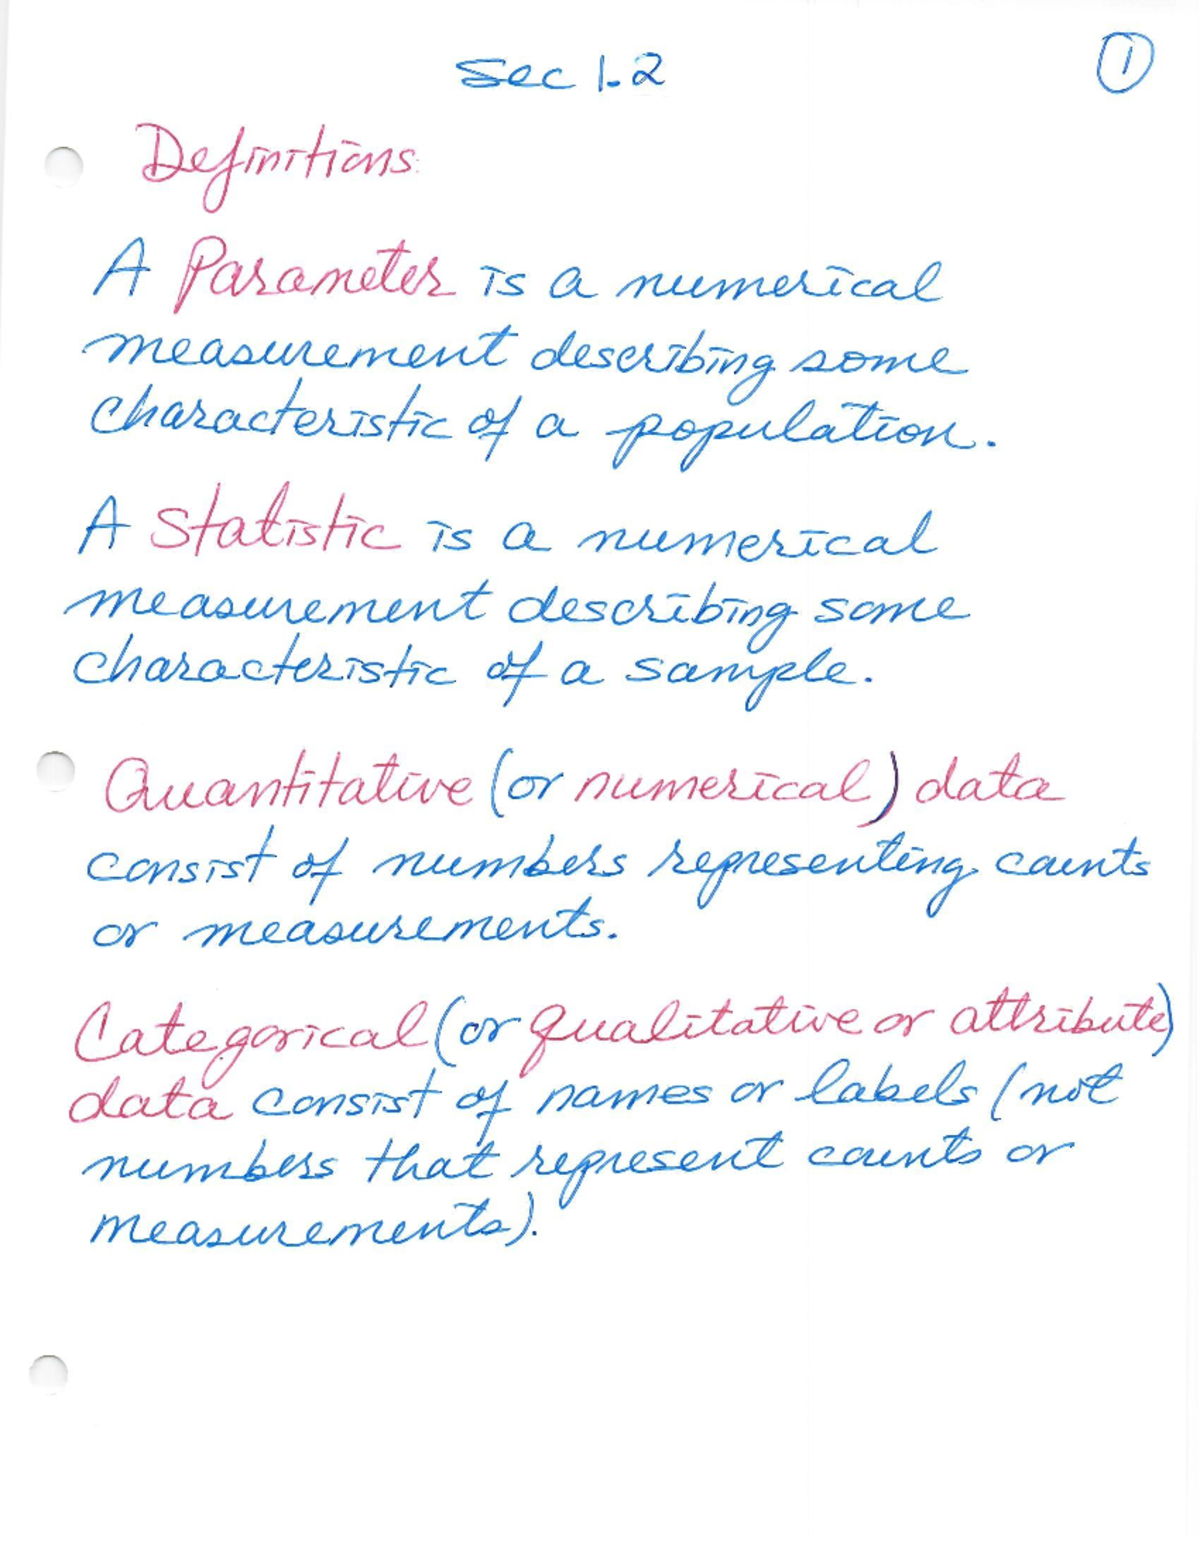 Sec 1.2
1
Definitions
A Parameter is a numerical
measurement describing some
characteristic of a population.
A Statistic is a numerical
measurement describing some
characteristic of a sample.
Quantitative (or numerical) data
consist of numbers representing counts
or measurements.
Categorical (or qualitative or attribute)
data consist of names or labels (not
numbers that represent counts or
measurements).